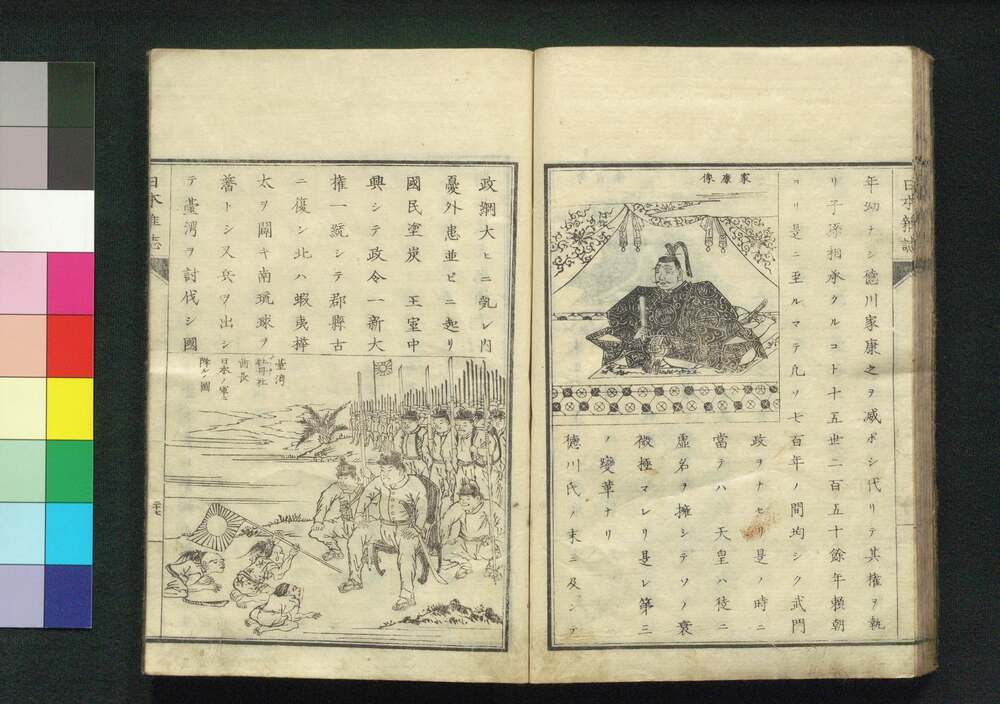 年幼ナシ德川家康之ヲ滅ボシ代リテ其權ヲ執
リ子孫相承クルコト十五世二百五十餘年賴朝
ヨリ是ニ至ルマテ凡ソ七百年ノ間均シク武門
家康像
政ヲナセリ是ノ時ニ
當テハ 天皇ハ徒ニ
虛名ヲ擁シテソノ衰
微極マレリ是レ第三
ノ變革ナリ
德川氏ノ末ニ及シテ
政綱大ヒニ亂レ内
憂外患並ビニ起リ
國民塗炭 王室中
興シテ政令一新大
權一統シテ郡縣古
ニ復シ北ハ蝦夷樺
太ヲ開キ南琉球ヲ
藩トシ又兵ヲ出シ
テ臺灣ヲ討伐シ國
臺湾
牡丹社
酋長
日本ノ軍ニ
降ル圖
日本